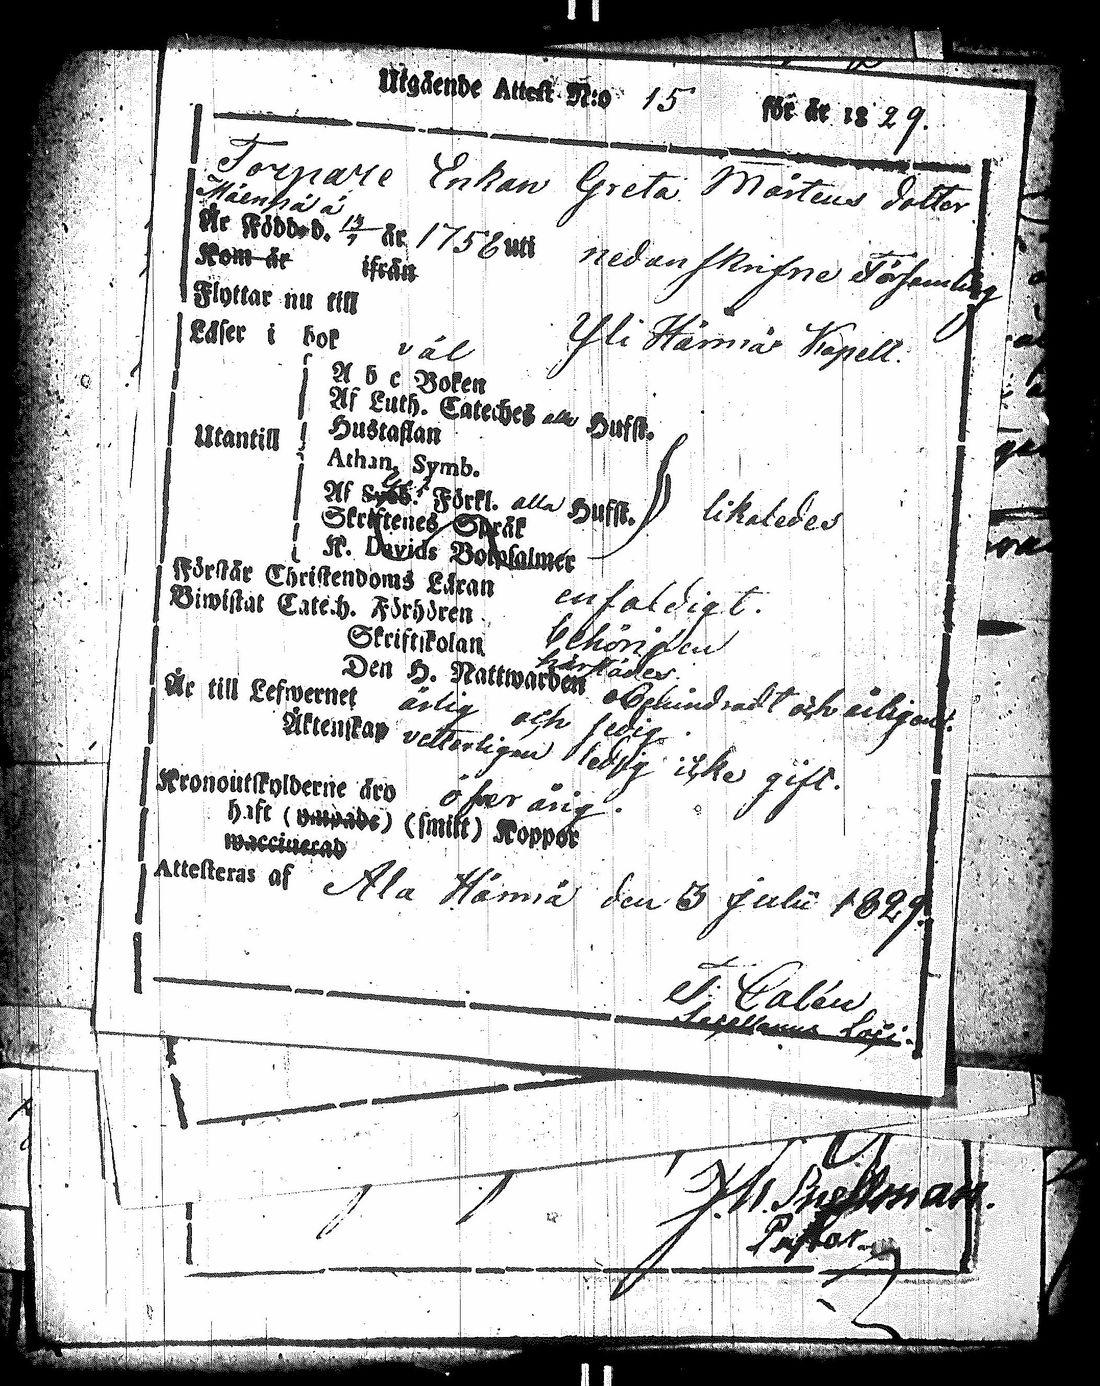 Utgående Attest N:o 15 för år 1829.
Torpare Enkan Greta Mårtens dotter
Mäenpää
Är Född d. 14/7 år 1758 uti nedanskrifne Församling
Kom år ifrån
Flyttar nu till Yli Härmä Kapell.
Läser i bok väl
A b c Boken
Af Luth. Cateches alla Hufst.
Utantill Hustaflan
Athan. Symb.
Af Förkl. alla Hufst. likaledes
Skriftenes Språk
K. Davids Botpsalmer
Förstår Christendoms Läran enfaldigt.
Biwistat Catech. Förhören behörigen
Skriftskolan härstädes.
Den H. Nattwarden obehindradt och årligen.
Är till Lefwernet ärlig och sedig.
Äktenskap vetterligen ledig icke gift.
Kronoutskylderne äro öfverårig.
haft (vaxade) (smitt) Koppor
waccinerad
Attesteras af Ala Härmä den 3 julii 1829.
Calén
Sacellanus Loci.
J. W. Snellman.
Pastor